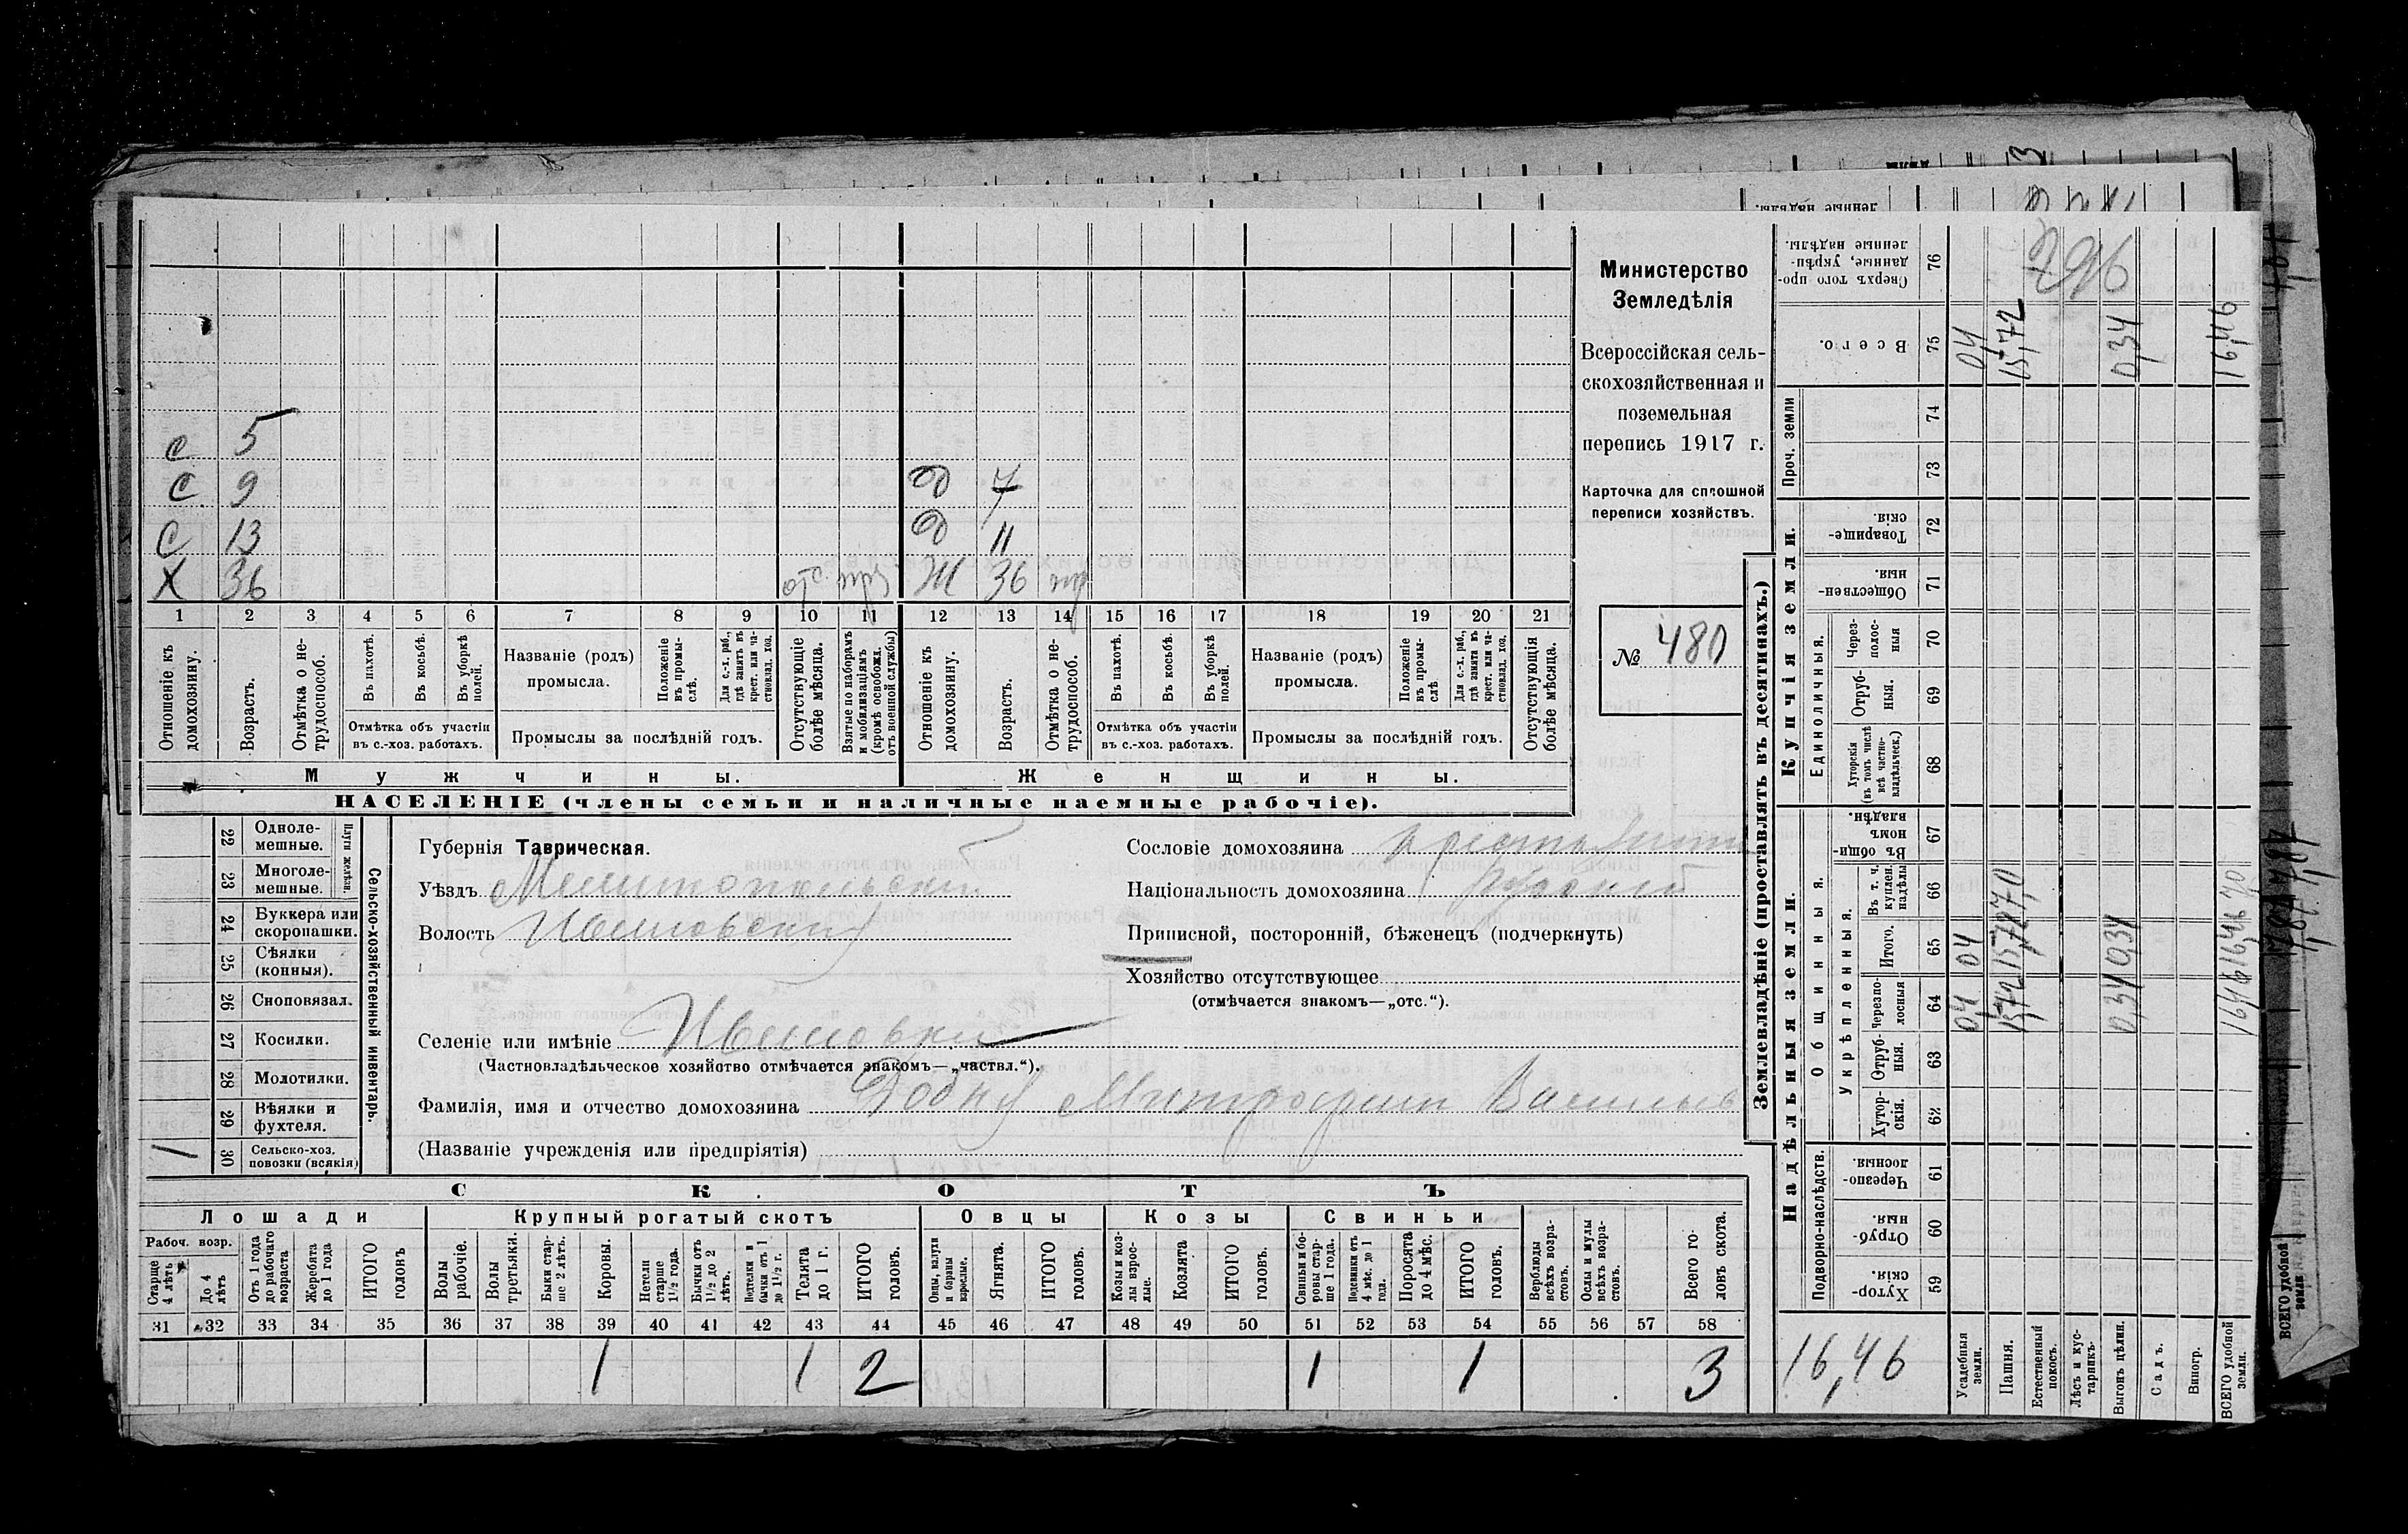 Министерство
Земледѣлія
Всероссійская сель-
скохозяйственная и
поземельная
перепись 1917 г.
Карточка для сплошной
переписи хозяйствъ.
№ 480
с 5
с 9 д 7
с 13 д 11
х 36 отс. Ж 36
1 2 3 4 5 6 7 8 9 10 11 12 13 14 15 16 17 18 19 20 21
Отношеніе къ домохозяину.
Возрастъ.
Отмѣтка о не-трудоспособ.
Въ пахотѣ.
Въ косьбѣ.
Въ уборкѣ полей.
Отмѣтка объ участіи
въ с.-хоз. работахъ.
Названіе (родъ)
промысла.
Положеніе въ промы-слѣ.
Для с.-х. раб., гдѣ занятъ въ крест. или ча-стновлад. хоз.
Промыслы за послѣдній годъ.
Отсутствующіе болѣе мѣсяца.
Взятые по наборамъ и мобилизаціямъ (кромѣ освобожд. отъ военной службы)
Отношеніе къ домохозяину.
Возрастъ.
Отмѣтка о не-трудоспособ.
Въ пахотѣ.
Въ косьбѣ.
Въ уборкѣ полей.
Отмѣтка объ участіи
въ с.-хоз. работахъ.
Названіе (родъ)
промысла.
Положеніе въ промы-слѣ
Для с.-х. раб., гдѣ занята въ крест. или ча-стновлад. хоз.
Промыслы за послѣдній годъ.
Отсутствующія болѣе мѣсяца.
Мужчины. Женщины.
НАСЕЛЕНІЕ (члены семьи и наличные наемные рабочіе).
Сельско-хозяйственный инвентарь.
Плуги желѣзн.
22 Одноле-мешные.
23 Многоле-мешные.
24 Буккера или скоропашки.
25 Сѣялки (конныя).
26 Сноповязал.
27 Косилки.
28 Молотилки.
29 Вѣялки и фухтеля.
30 Сельско-хоз. повозки (всякія) 1
Губернія Таврическая.
Уѣздъ Мелитопольскій
Волость
Селеніе или имѣніе
(Частновладѣльческое хозяйство отмѣчается знакомъ—„частвл.“).
Фамилія, имя и отчество домохозяина Митрофанъ Васильев
(Названіе учрежденія или предпріятія)
Сословіе домохозяина
Національность домохозяина
Приписной, посторонній, бѣженецъ (подчеркнуть)
Хозяйство отсутствующее
(отмѣчается знакомъ—„отс.“).
СКОТЪ
Лошади Крупный рогатый скотъ Овцы Козы Свиньи
Рабоч. возр.
Старше 4 лѣтъ
До 4 лѣтъ
Отъ 1 года до рабочаго возраста
Жеребята до 1 года
ИТОГО головъ
Волы рабочіе.
Волы третьяки.
Быки стар-ше 2 лѣтъ.
Коровы.
Нетели старше 1½ года.
Бычки отъ 1½ до 2 лѣтъ.
Подтелки и бычки отъ 1 до 1½ г.
Телята до 1 г.
ИТОГО головъ.
Овцы, валухи и бараны взрослые.
Ягнята.
ИТОГО головъ.
Козы и коз-лы взрос-лые.
Козлята
ИТОГО головъ.
Свиньи и бо-ровы стар-ше 1 года.
Подсвинки отъ 4 мѣс. до 1 года.
Поросята до 4 мѣс.
ИТОГО головъ.
Верблюды всѣхъ возра-стовъ.
Ослы и мулы всѣхъ возра-стовъ.
Всего го-ловъ скота.
31 32 33 34 35 36 37 38 39 40 41 42 43 44 45 46 47 48 49 50 51 52 53 54 55 56 57 58
1 1 2 1 1 3
Землевладѣніе (проставлять въ десятинахъ.)
Надѣльныя земли. Купчія земли. Проч. земли
Подворно-наслѣдств.
Общинныя.
Укрѣпленныя.
Единоличныя.
59 Хутор-скія.
60 Отруб-ныя.
61 Черезпо-лосныя.
62 Хутор-скія.
63 Отруб-ныя.
64 Черезпо-лосныя
65 Итого.
66 Въ т. ч. куплен. надѣлы
67 Въ общи-номъ владѣн.
68 Хуторскія (въ томъ числѣ всѣ частно-владѣльческ.)
69 Отруб-ныя.
70 Через-полос-ныя
71 Обществен-ныя.
72 Товарище-скія.
73
74
75 Всего.
76 Сверхъ того про-данные, укрѣп-ленные надѣлы.
Усадебныя земли. 0,4 04 04
Пашня. 15,72 15,72
Естественный покосъ.
Лѣсъ и кус-тарникъ.
Выгонъ цѣлин. 0,34 0,34 0,34
Садъ.
Виногр.
ВСЕГО удобной земли. 16,46 16,46 16,46
16,46
296
ВСЕГО удобной земли